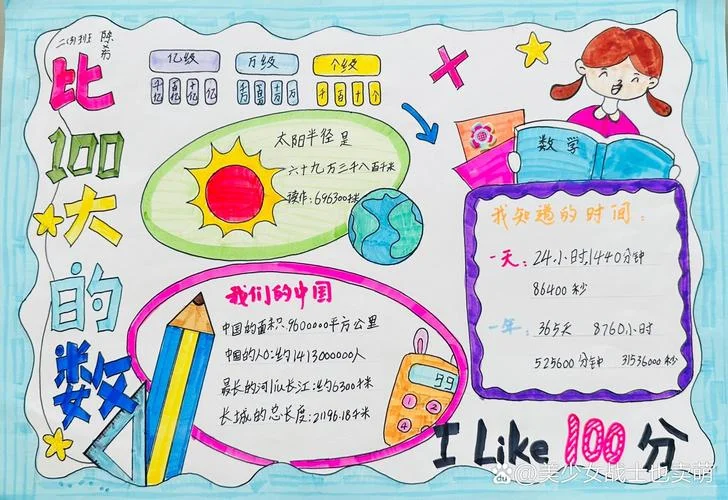 二(3)班
陈希
比100大的数
亿级 万级 个级
千亿 百亿 十亿 亿 千万 百万 十万 万 千 百 十 个
太阳半径是
六十九万三千八百千米
读作:696300千米
数学
我知道的时间:
一天:24小时,1440分钟
86400秒
一年:365天 8760小时
525600分钟 31536000秒
我们的中国
中国的面积:9600000平方公里
中国的人口:约1413000000人
最长的河川长江:约6300千米
长城的总长度:21196.18千米
99
1 2
4
I Like 100分
Bai du @美少女战士也卖萌